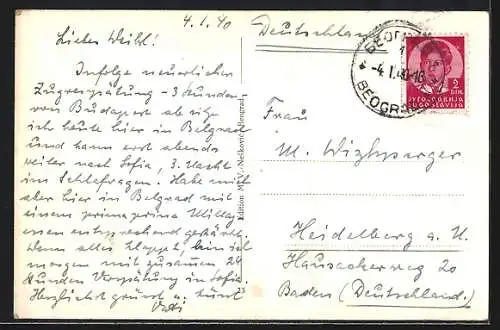 4.1.40
Liebes Weibl!
Infolge neuerlicher
Zugverspätung - 3 Stunden
von Budapest ab sitze
ich heute hier in Belgrad
und kann erst abends
weiter nach Sofia, 3. Nacht
im Schlafwagen. Habe mich
aber hier in Belgrad mit
einem prima prima Mittag
essen entsprechend gestärkt.
Wenn alles klappt bin ich
morgen mit zusammen 24
Stunden Verspätung in Sofia.
Herzlichst grüsst u. küsst
Vati
Edition M.D.V.-Nešković, Beograd
23
Deutschland
БЕОГРАД
-4.1.40-16
BEOGRAD
2
DIN.
ЈУГОСЛАВИЈА
JUGOSLAVIJA
Frau
M.
Heidelberg a. N.
Hausackerweg 20
Baden (Deutschland.)